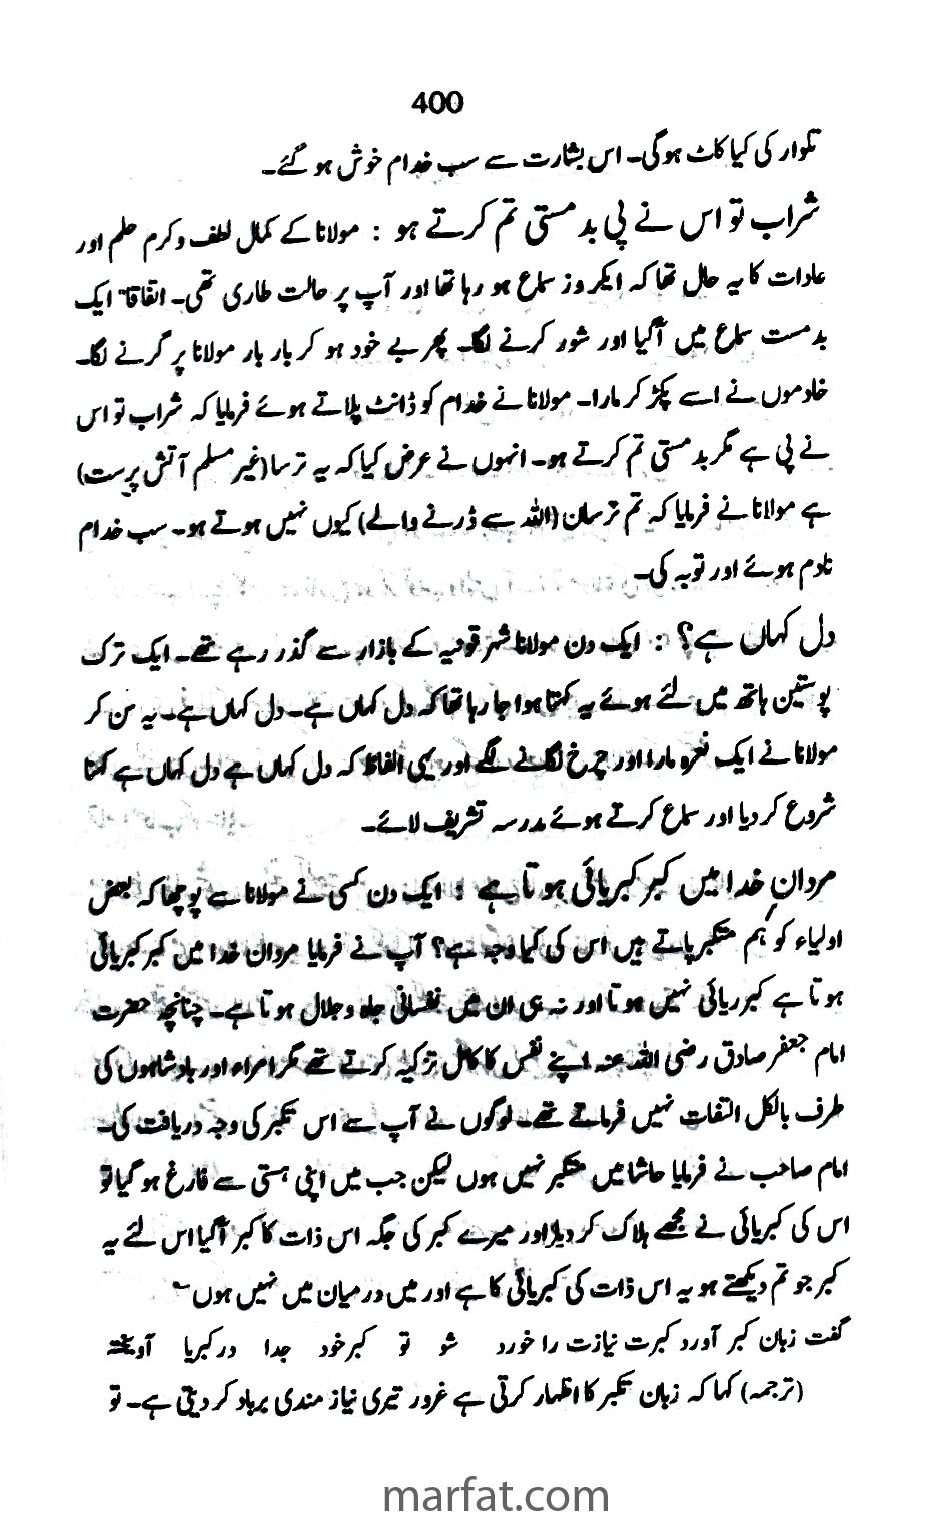 400
تلوار کی کیا کاٹ ہوگی۔ اس بشارت سے سب خدام خوش ہو گئے۔
شراب تو اس نے پی بد مستی تم کرتے ہو : مولانا کے کمال لطف و کرم حلم اور
عادات کا یہ حال تھا کہ ایکروز سماع ہو رہا تھا اور آپ پر حالت طاری تھی۔ اتفاقاً ایک
بد مست سماع میں آگیا اور شور کرنے لگا۔ پھر بے خود ہو کر بار بار مولانا پر گرنے لگا۔
خادموں نے اسے پکڑ کر مارا۔ مولانا نے خدام کو ڈانٹ پلاتے ہوئے فرمایا کہ شراب تو اس
نے پی ہے مگر بد مستی تم کرتے ہو۔ انہوں نے عرض کیا کہ یہ ترسا (غیر مسلم آتش پرست)
ہے مولانا نے فرمایا کہ تم ترسان (اللہ سے ڈرنے والے) کیوں نہیں ہوتے ہو۔ سب خدام
نادم ہوئے اور توبہ کی۔
دل کہاں ہے؟ : ایک دن مولانا شہر قونیہ کے بازار سے گذر رہے تھے۔ ایک ترک
پوستین ہاتھ میں لئے ہوئے یہ کہتا ہوا جا رہا تھا کہ دل کہاں ہے۔ دل کہاں ہے۔ یہ سن کر
مولانا نے ایک نعرہ مارا اور چرخ لگانے لگے اور یہی الفاظ کہ دل کہاں ہے دل کہاں ہے کہنا
شروع کر دیا اور سماع کرتے ہوئے مدرسہ تشریف لائے۔
مردانِ خدا میں کبر کبریائی ہوتا ہے : ایک دن کسی نے مولانا سے پوچھا کہ بعض
اولیاء کو ہم متکبر پاتے ہیں اس کی کیا وجہ ہے؟ آپ نے فرمایا مردان خدا میں کبر کبریائی
ہوتا ہے کبر ریائی نہیں ہوتا اور نہ ہی ان میں نفسانی جاہ و جلال ہوتا ہے۔ چنانچہ حضرت
امام جعفر صادق رضی اللہ عنہ اپنے نفس کا کامل تزکیہ کرتے تھے مگر امراء اور بادشاہوں کی
طرف بالکل التفات نہیں فرماتے تھے۔ لوگوں نے آپ سے اس تکبر کی وجہ دریافت کی۔
امام صاحب نے فرمایا حاشا میں متکبر نہیں ہوں لیکن جب میں اپنی ہستی سے فارغ ہو گیا تو
اس کی کبریائی نے مجھے ہلاک کر دیا اور میرے کبر کی جگہ اس ذات کا کبر آگیا اس لئے یہ
کبر جو تم دیکھتے ہو یہ اس ذات کی کبریائی کا ہے اور میں درمیان میں نہیں ہوں
گفت زبان کبر آورد کبرت نیازت را خورد شو تو کبر خود جدا در کبریا آویختہ
(ترجمہ) کہا کہ زبان تکبر کا اظہار کرتی ہے غرور تیری نیاز مندی برباد کر دیتی ہے۔ تو
marfat.com